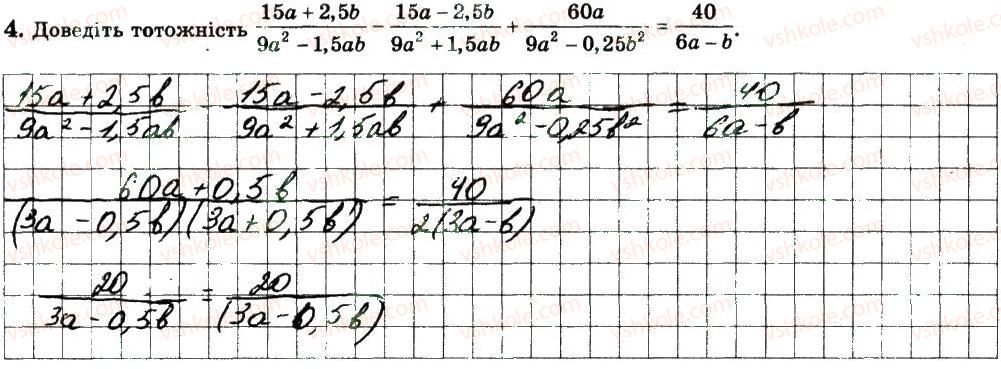 4. Доведіть тотожність (15a + 2,5b)/(9a² − 1,5ab) − (15a − 2,5b)/(9a² + 1,5ab) + 60a/(9a² − 0,25b²) = 40/(6a − b).
(15a + 2,5b)/(9a² − 1,5ab) − (15a − 2,5b)/(9a² + 1,5ab) + 60a/(9a² − 0,25b²) = 40/(6a − b)
(60a + 0,5b)/((3a − 0,5b)(3a + 0,5b)) = 40/(2(3a − b))
20/(3a − 0,5b) = 20/((3a − 0,5b))
vshkole.com